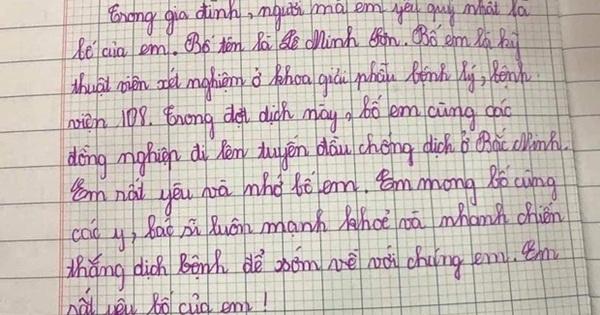 Trong gia đình, người mà em yêu quý nhất là
bố của em. Bố tên là Lê Minh Sơn. Bố em là kỹ
thuật viên xét nghiệm ở khoa giải phẫu bệnh lý, bệnh
viện 108. Trong đợt dịch này, bố em cùng các
đồng nghiệp đi lên tuyến đầu chống dịch ở Bắc Ninh.
Em rất yêu và nhớ bố em. Em mong bố cùng
các y, bác sĩ luôn mạnh khoẻ và nhanh chiến
thắng dịch bệnh để sớm về với chúng em. Em
rất yêu bố của em!